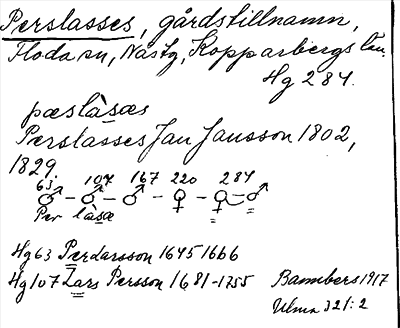 Perslasses, gårdstillnamn,
Floda sn, Nåstg, Kopparbergs län.
Hg 284.
pæslàsæs
Perslasses Jan Jansson 1802,
1829.
63 107 167 220 284
♂ – ♂ – ♂ – ♀ – ♀ ♂
Per làsæ
Hg 63 Per Larsson 1645 1666
Hg 107 Lars Persson 1681-1755
Bannbers 1917
Ulma 321:2